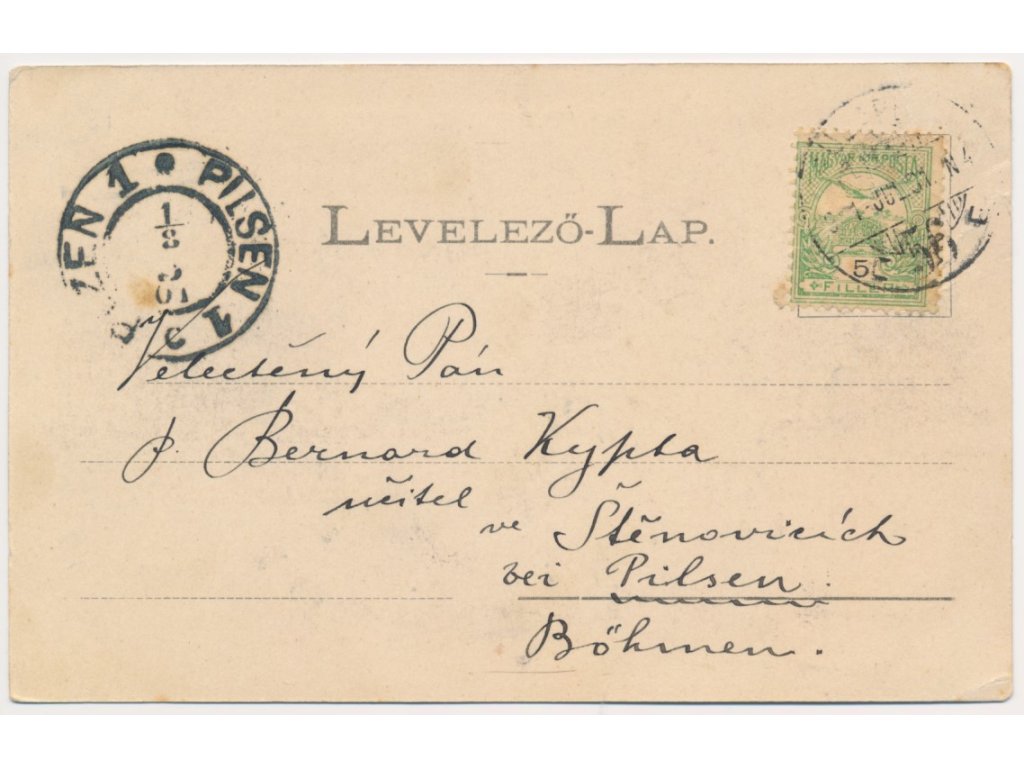 PILSEN 1
ZEN 1
1/8
01
LEVELEZŐ-LAP.
MAGYAR KIR. POSTA
5
FILLÉR
Velectěný Pán
p. Bernard Kypta
učitel
ve Štěnovicích
bei Pilsen.
Böhmen.